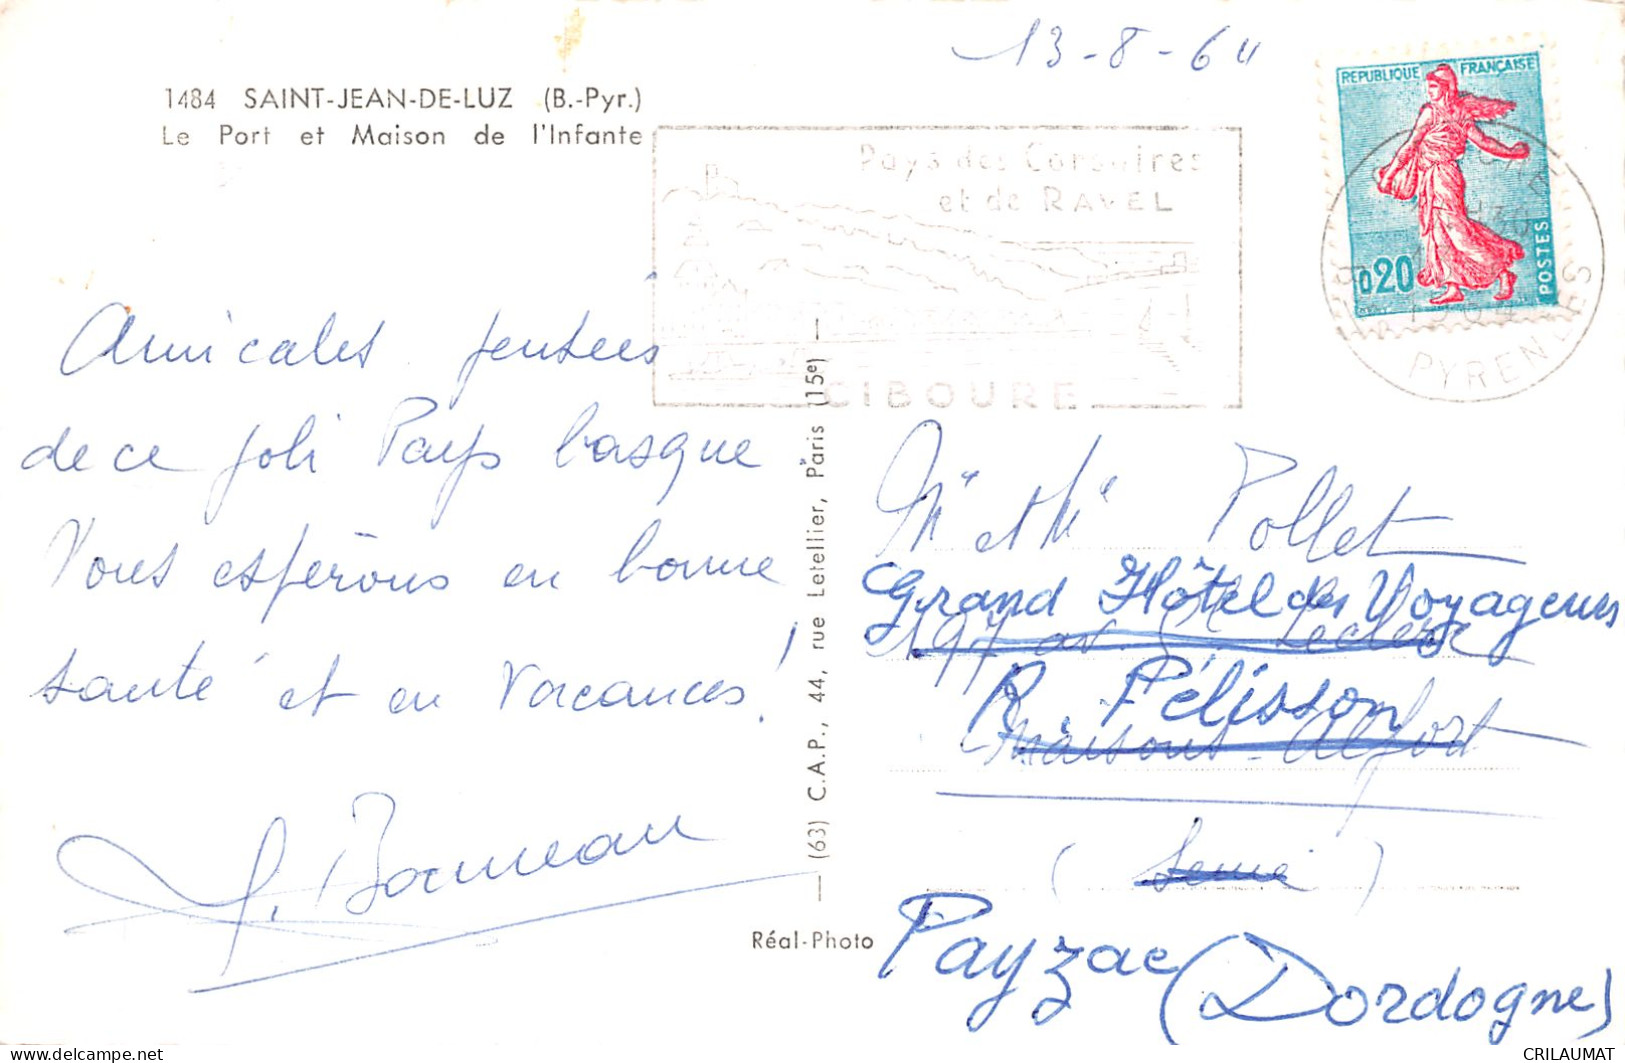 13-8-64
1484 SAINT-JEAN-DE-LUZ (B.-Pyr.)
Le Port et Maison de l'Infante
Pays des Corsaires
et de RAVEL
CIBOURE
REPUBLIQUE FRANÇAISE
0,20
POSTES
1964
PYRENEES
Amicales pensées
de ce joli Pays basque
Vous espérons en bonne
santé et en Vacances!
Bonneau
(63) C.A.P., 44, rue Letellier, Paris (15e)
Réal-Photo
Mr et Me Pollet
Grand Hôtel des Voyageurs
197 av. Leclerc
R. Pélisson
Maisons-Alfort
(Seine)
Payzac (Dordogne)
CRILAUMAT